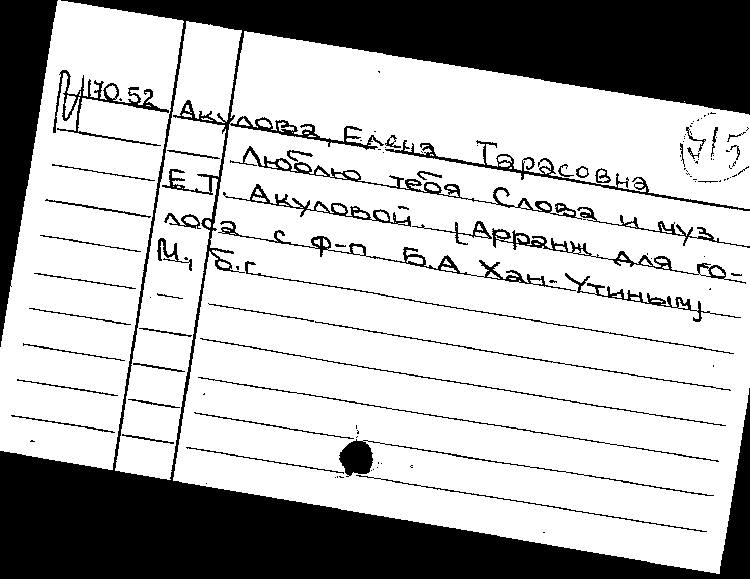 170.52
Акулова, Елена Тарасовна
Люблю тебя. Слова и муз.
Е.Т. Акуловой. [Арранж. для го-
лоса с ф-п. Б.А. Хан-Утиным]
М., б.г.